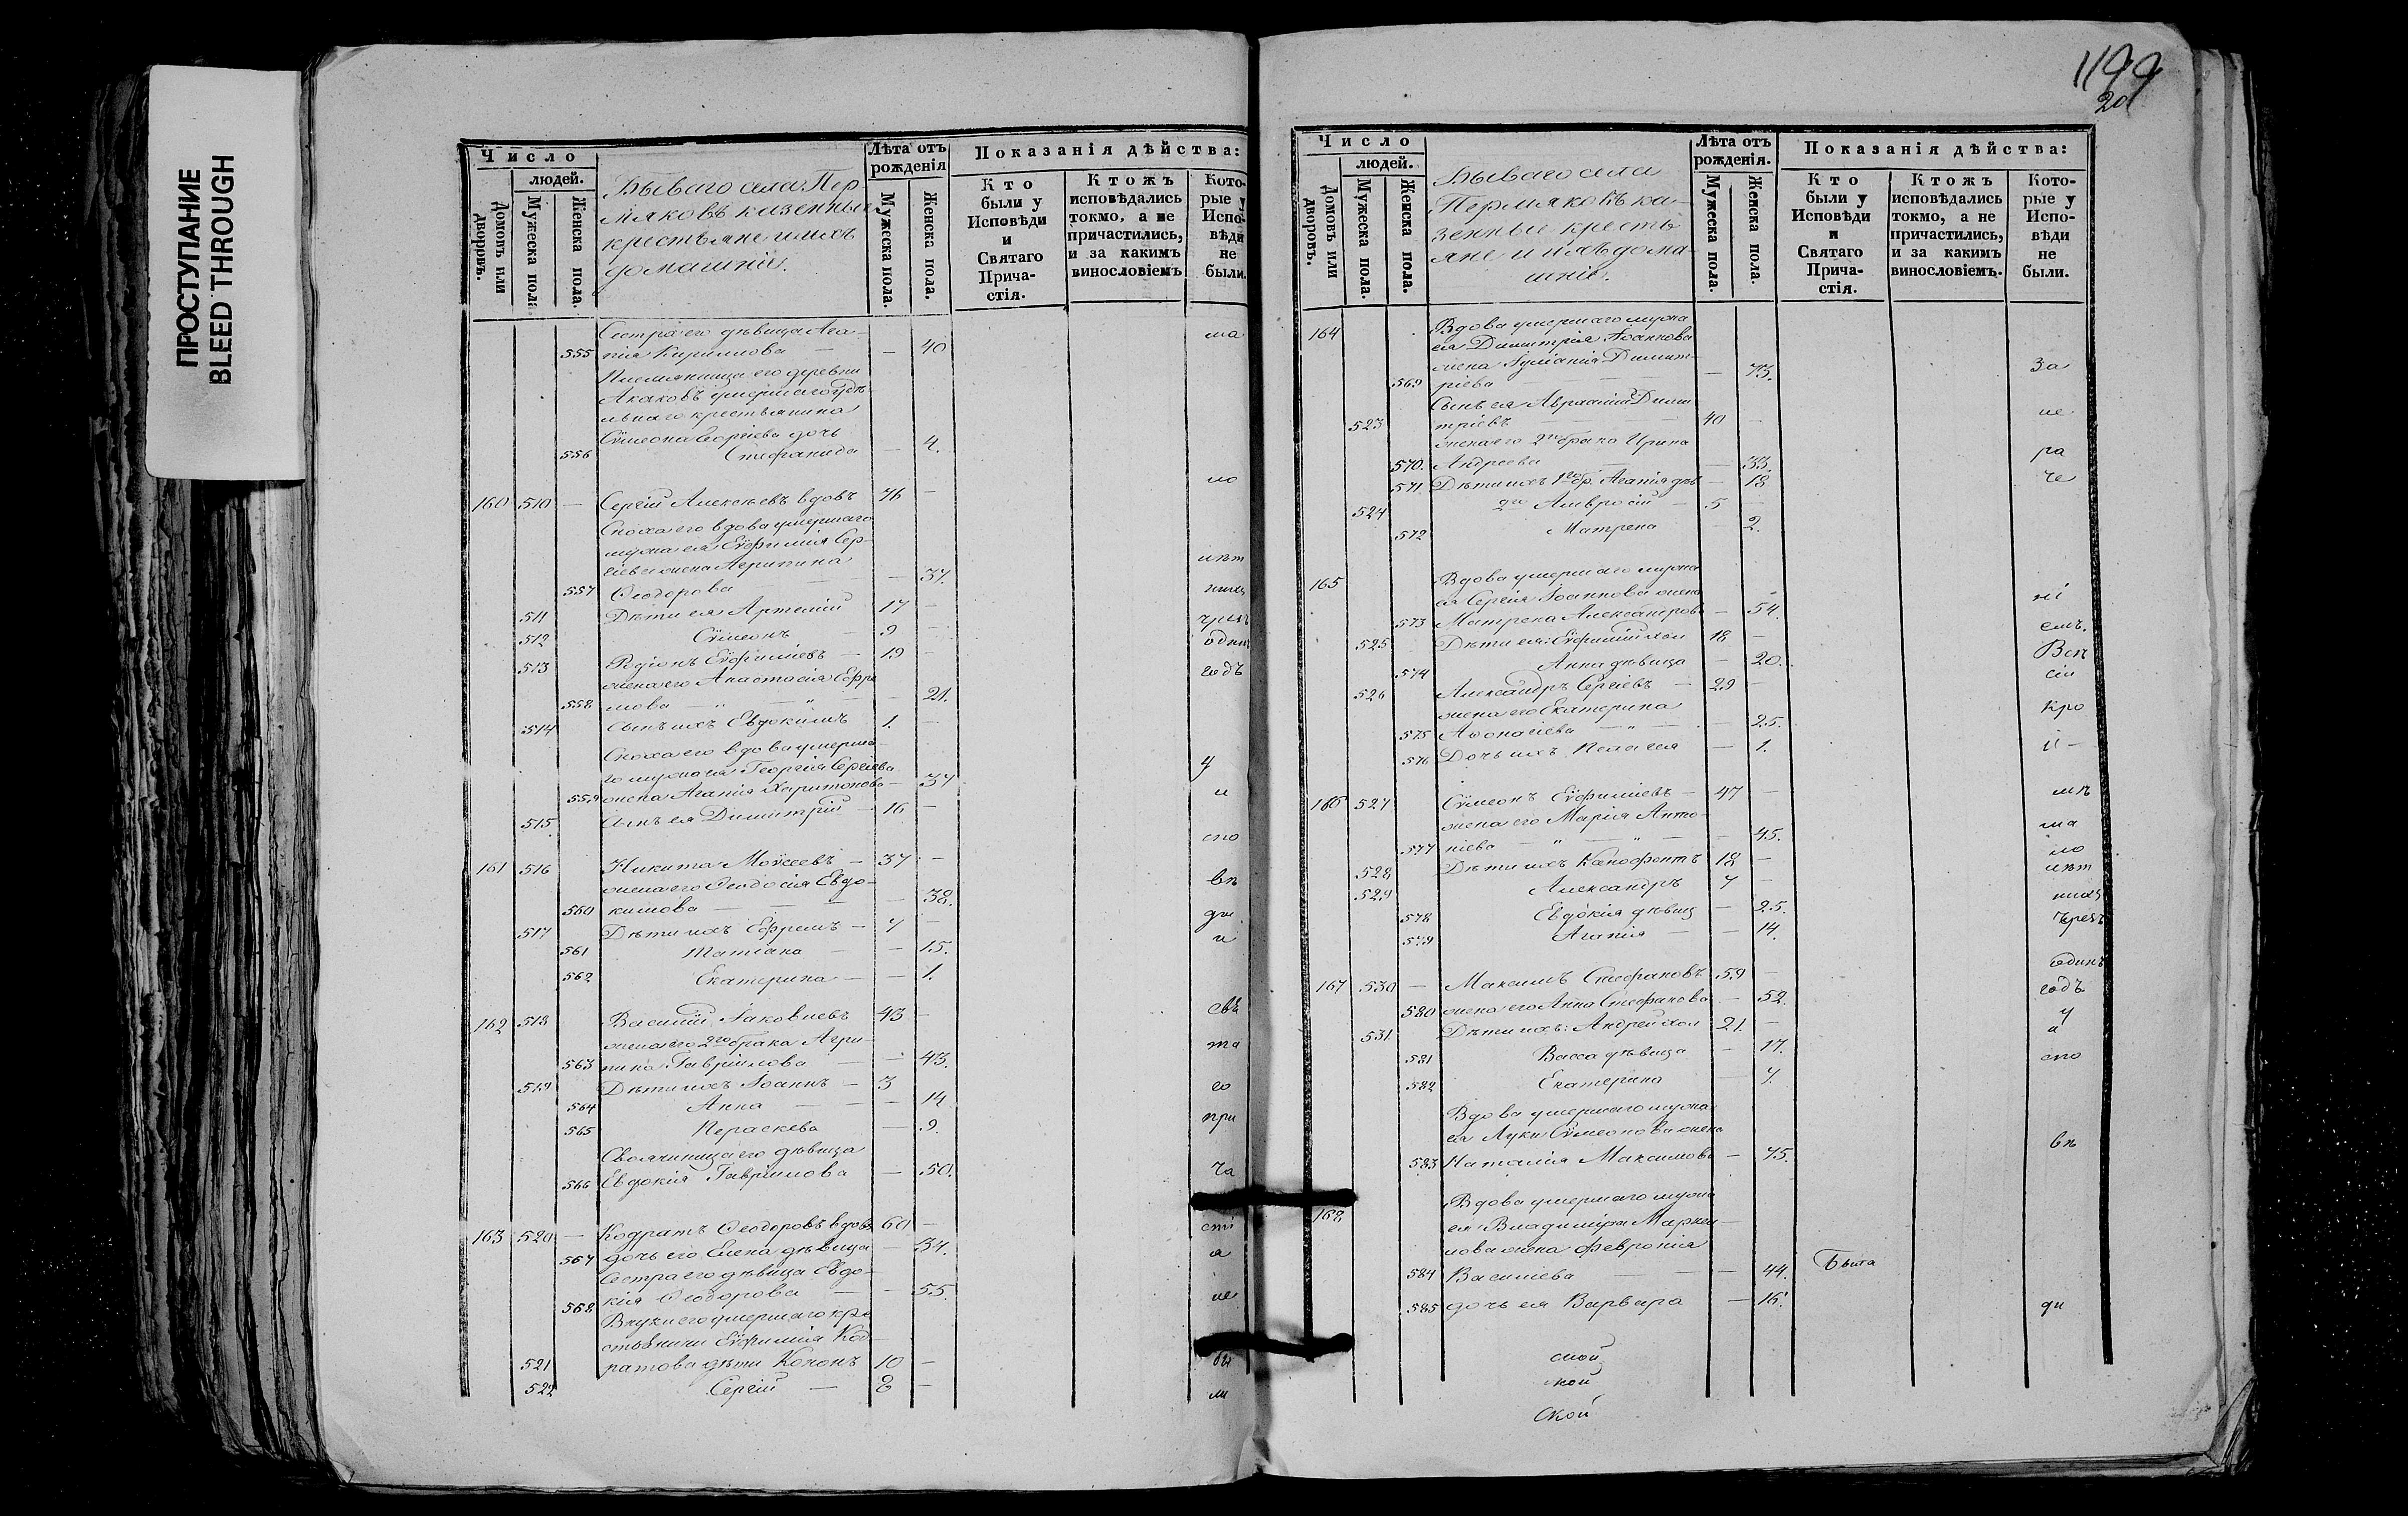 ПРОСТУПАНИЕ
BLEED THROUGH
Число
людей.
Домовъ или дворовъ.
Мужеска пола.
Женска пола.
Бываго села Пер-
мяковъ казенные
крестьяне и ихъ
домашніе.
Лѣта отъ
рожденія
Мужеска пола.
Женска пола.
Показанія дѣйства:
Кто
были у
Исповѣди
и
Святаго
Прича-
стія.
Ктожъ
исповѣдались
токмо, а не
причастились,
и за какимъ
винословіемъ
Кото-
рые у
Испо-
вѣди
не
были.
Сестра его дѣвица Ага- ма
555 пія Кириллова — — 40
Племянница его деревни
умершаго удѣ
льнаго крестьянина
Сѵмеона Георгіева дочь
556 Стефанида — 4.
ло
160 510 — Сергій Алексѣевъ вдовъ 76 —
Сноха его вдова умершаго
мужа ея Евѳимія Сер-
гіева жена Агрипина лѣт
557 Ѳеодорова — 37. нихъ
511 Дѣти ея Артемій 17 — чрезъ
512 Сѵмеонъ — 9 — одинъ
513 Родіонъ Евѳиміевъ — 19 —
жена его Анастасія Ефре годъ
558 мова — „ — „ — 21.
514 Сынъ ихъ Евдокимъ 1. —
Сноха его вдова умерша-
го мужа ея Георгія Сергіева у
559 жена Агапія Харитонова — 37 и
515. Сынъ ея Димитрій — 16 —
спо
161 516 Никита Моѵсеевъ — 37 —
жена его Ѳеодосія Евдо- вѣ
560 кимова — — — — 38.
517 Дѣти ихъ Ефремъ — 7 — ди
561 Татіана — — 15. и
562 Екатерина — — 1.
162 518 Василій Іаковлевъ 43 — свѣ
жена его 2го брака Агри- та
563 пина Гавріилова — — 43.
519 Дѣти ихъ Іоаннъ — 3 го
564 Анна — — — 14
565 Параскева — 9. при
Своячиница его дѣвица
566 Евдокія Гавріилова — 50. ча
163 520 — Кодратъ Ѳеодоровъ вдовъ 60 — сті
567 дочь его Елена дѣвица — 34. я
Сестра его дѣвица Евдо-
568 кія Ѳеодорова — — 55. не
Внуки его умершаго кре
стьянина Евѳимія Код-
521 ратова дѣти Кононъ 10 — бы
522 Сергій — 8 — ли
1199
20
Число
людей.
Домовъ или дворовъ.
Мужеска пола.
Женска пола.
Бываго села
Пермяковъ ка-
зенные кресть
яне и ихъ дома-
шніе.
Лѣта отъ
рожденія.
Мужеска пола.
Женска пола.
Показанія дѣйства:
Кто
были у
Исповѣди
и
Святаго
Прича-
стія.
Ктожъ
исповѣдались
токмо, а не
причастились,
и за какимъ
винословіемъ.
Кото-
рые у
Испо-
вѣди
не
были.
164 Вдова умершаго мужа
ея Димитрія Іоаннова
жена Іуліанія Димит- За
569 ріева — 73.
Сынъ ея Авраамій Дими не
523 тріевъ 40 —
жена его 2го брака Ирина ра
570. Андреева — 33.
571 Дѣти ихъ 1го бр. Агапія дѣв — 18 че
524 2го Амвросій — 5
572 Матрена — 2.
165 Вдова умершаго мужа
ея Сергія Іоаннова жена ні
573 Матрена Александрова — 54.
525 Дѣти ея: Евѳимій хол 18 — емъ.
574 Анна дѣвица — 20. Вст
526 Александръ Сергіевъ — 29 — сіи
жена его Екатерина
575 Аѳонасіева — „ — — 25. кро
576 Дочь ихъ Пелагея — 1. й —
166 527 Сѵмеонъ Евѳиміевъ — 47 — мѣ
жена его Марія Анто-
577 ніева — „ — „ — — 45. ма
528 Дѣти ихъ Ксенофонтъ 18 — ло
529 Александръ 7 — лѣт
578 Евдокія дѣвиц — 25. нихъ
579 Агапія — — 14. чрезъ
167 530 — Максимъ Стефановъ 59 — одинъ
580 жена его Анна Стефанова — 52. годъ
531. Дѣти ихъ: Андрей хол 21. — у
и
581 Васса дѣвица — 17. спо
582 Екатерина — 7.
Вдова умершаго мужа
ея Луки Сѵмеонова жена
583 Наталія Максимова — 75. вѣ
168 Вдова умершаго мужа
ея Владиміра Маркел-
лова жена Февронія
584 Василіева — — — 44. Была
585 дочь ея Варвара — 16. ди
ской